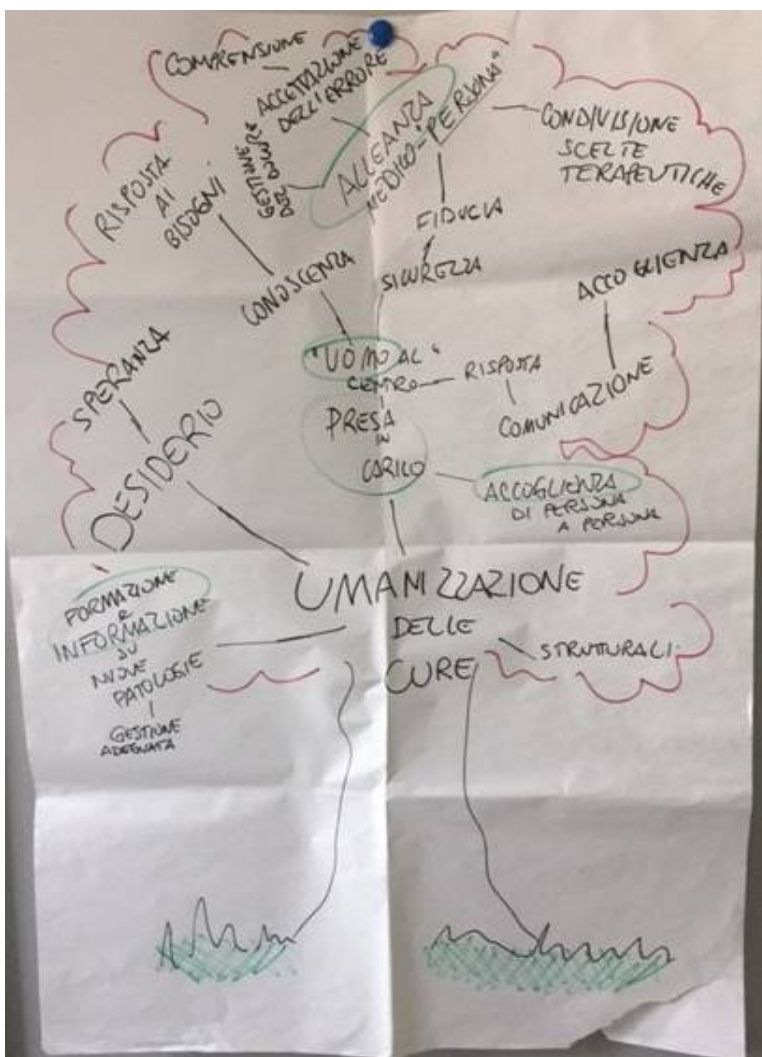 COMPRENSIONE
ACCETTAZIONE
DELL'ERRORE
GESTIONE
DEL DOLORE
ALLEANZA
MEDICO-"PERSONA"
CONDIVISIONE
SCELTE
TERAPEUTICHE
RISPOSTA
AI
BISOGNI
FIDUCIA
SICUREZZA
CONOSCENZA
ACCOGLIENZA
"UOMO AL"
CENTRO
RISPOSTA
COMUNICAZIONE
SPERANZA
DESIDERIO
PRESA
IN
CARICO
ACCOGLIENZA
DI PERSONA
A PERSONA
UMANIZZAZIONE
DELLE
CURE
FORMAZIONE
E
INFORMAZIONE
SU
NUOVE
PATOLOGIE
GESTIONE
ADEGUATA
STRUTTURALI